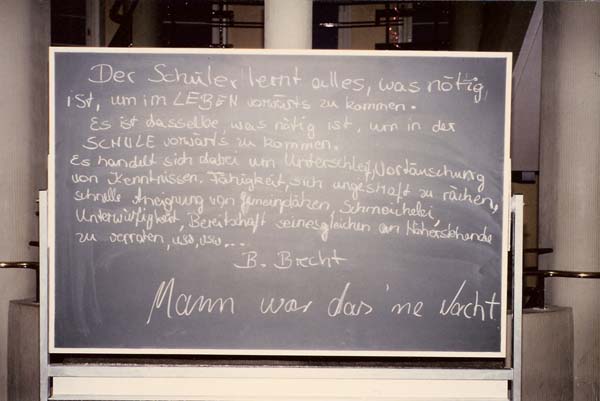 Der Schüler lernt alles, was nötig
ist, um im LEBEN vorwärts zu kommen.
Es ist dasselbe, was nötig ist, um in der
SCHULE vorwärts zu kommen.
Es handelt sich dabei um Unterschleif, Vortäuschung
von Kenntnissen, Fähigkeit, sich ungestraft zu rächen,
schnelle Aneignung von Gemeinplätzen, Schmeichelei,
Unterwürfigkeit, Bereitschaft seinesgleichen an Höherstehende
zu verraten, usw, usw...
B. Brecht
Mann war das 'ne Nacht